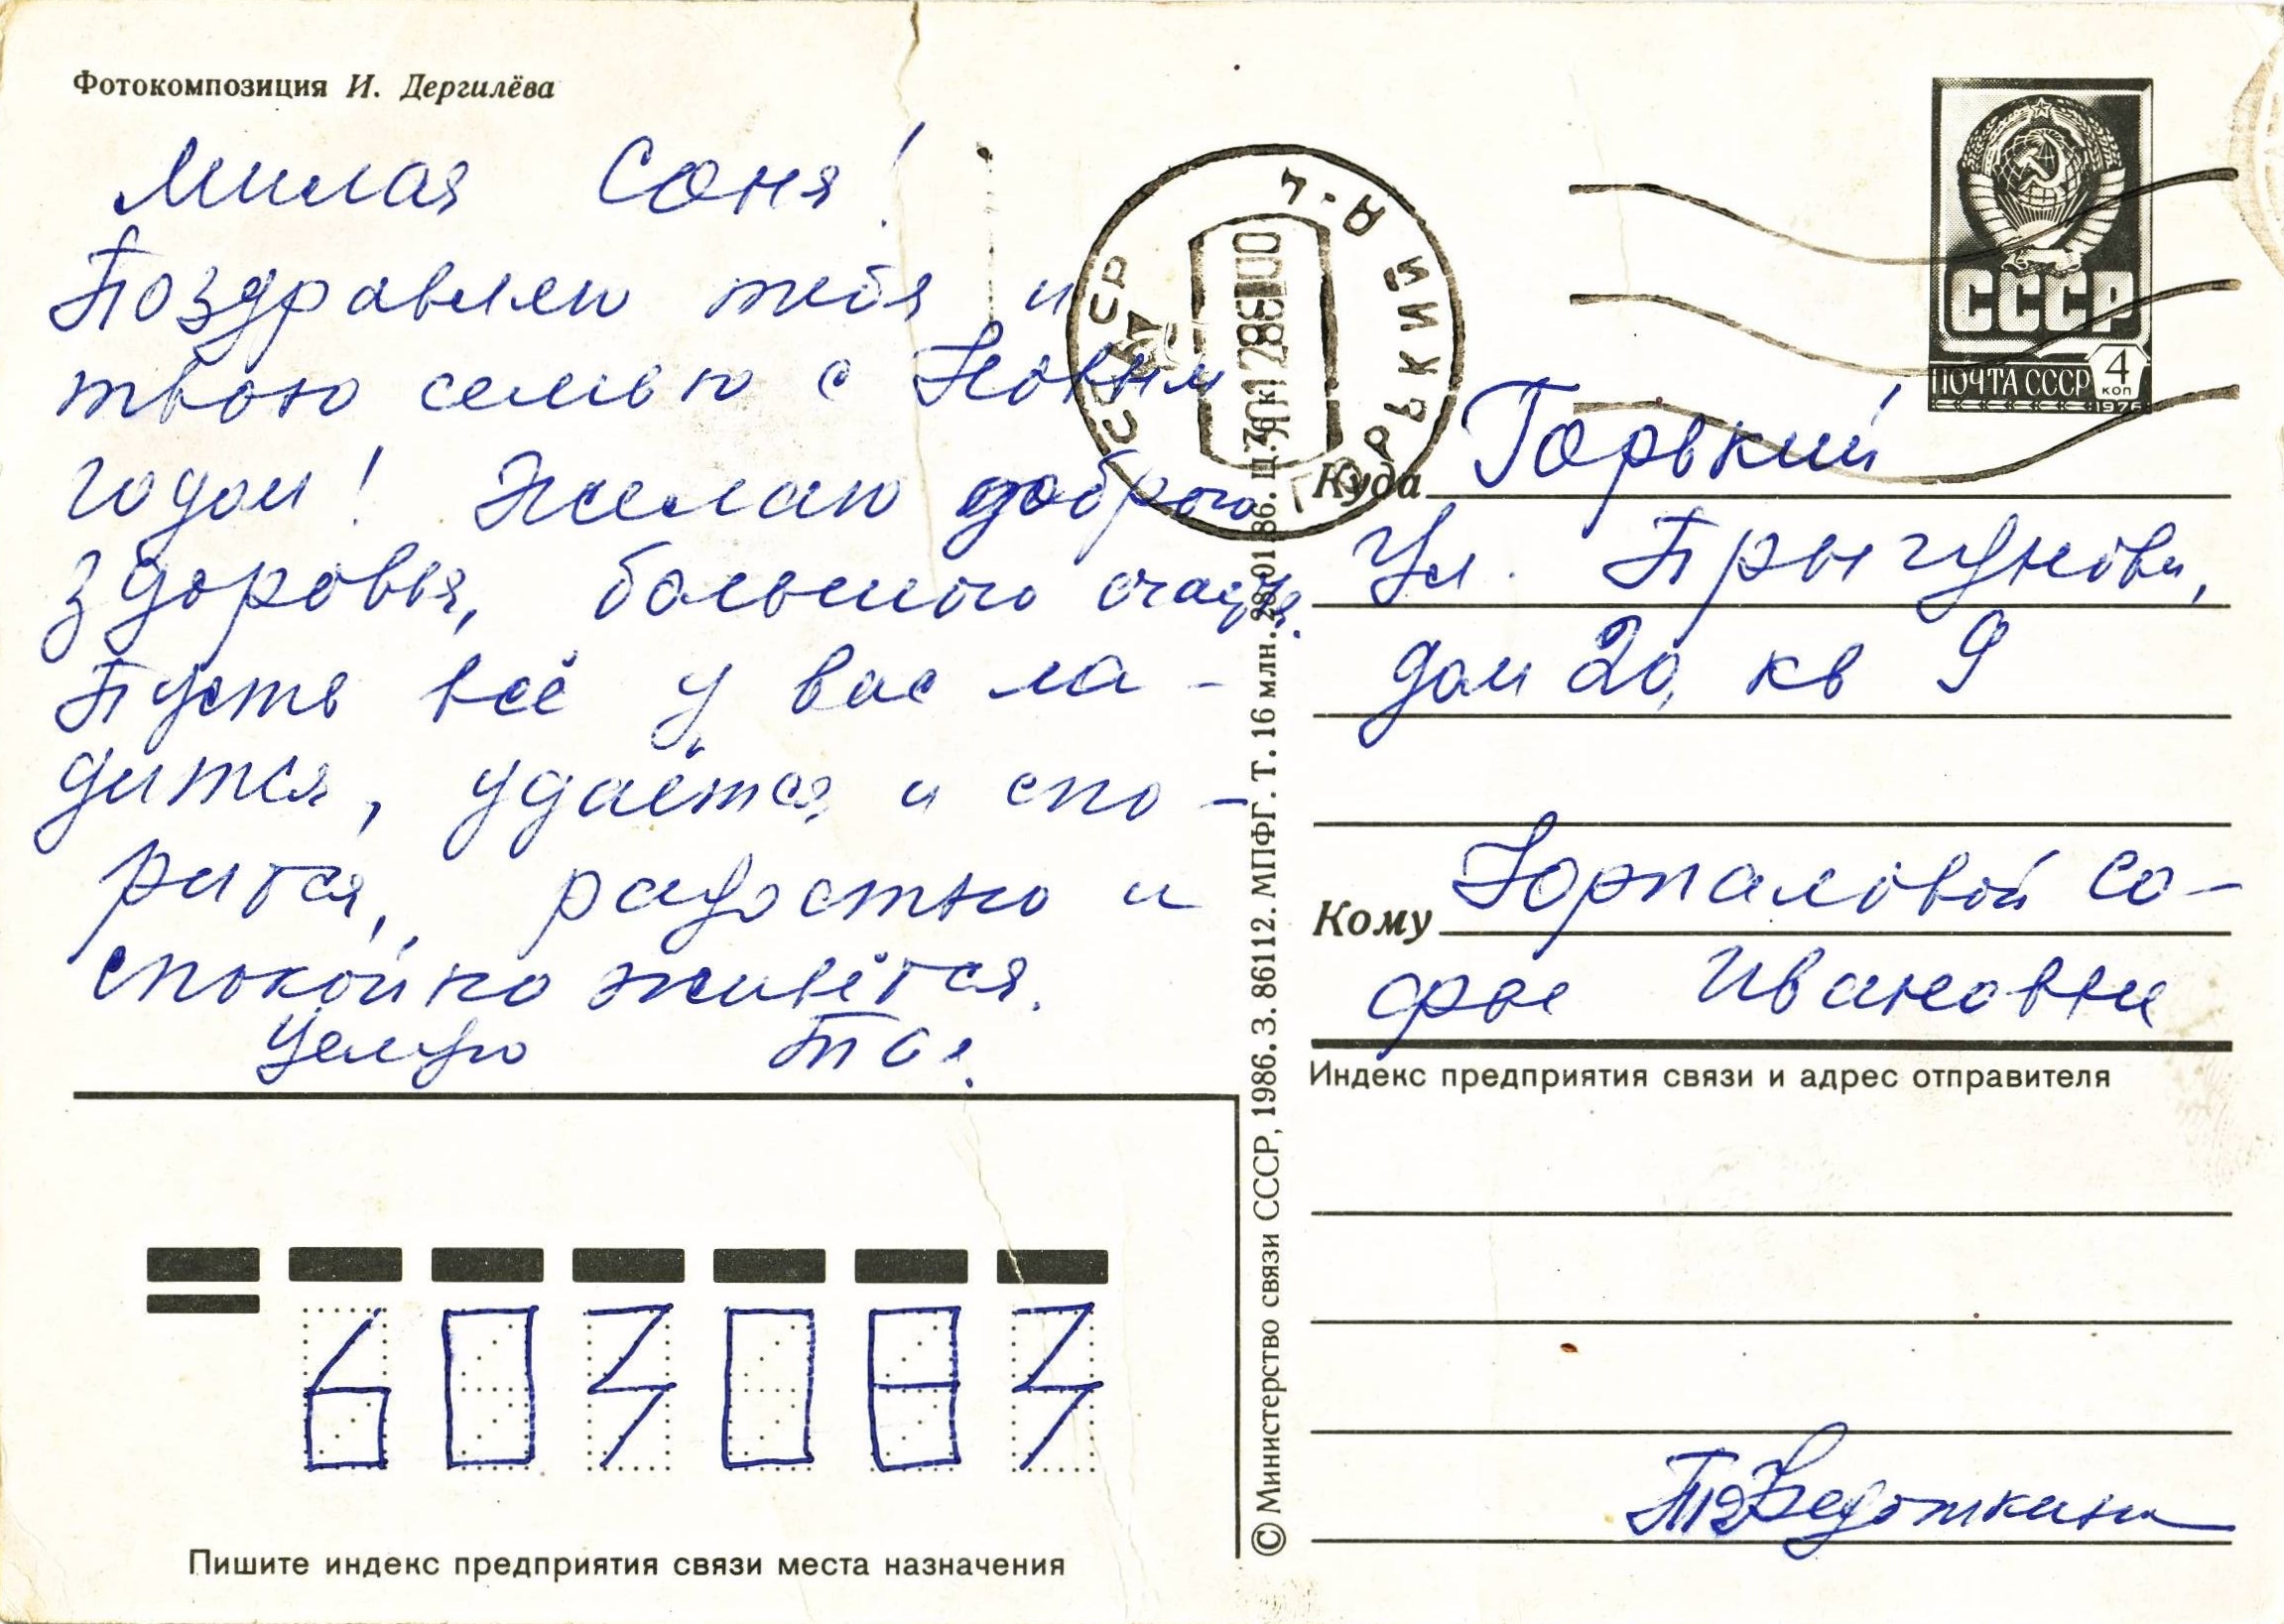 Фотокомпозиция И. Дергилёва
Милая Соня!
Поздравляю тебя и
твою семью с Новым
годом! Желаю доброго
здоровья, большого счастья.
Пусть всё у вас ла-
дится, удаётся и спо-
рится, радостно и
спокойно живётся.
Целую Тося.
603083
Пишите индекс предприятия связи места назначения
© Министерство связи СССР, 1986. З. 86112. МПФГ. Т. 16 млн. 28.01.86. Ц. 3 к.
ГОРЬКИЙ А-4
СССР
30 12 86 1 00
СССР
ПОЧТА СССР 4 коп
1976
Куда Горький
Ул. Прыгунова,
дом 20, кв 9
Кому Юрпаловой Со-
фье Ивановне
Индекс предприятия связи и адрес отправителя